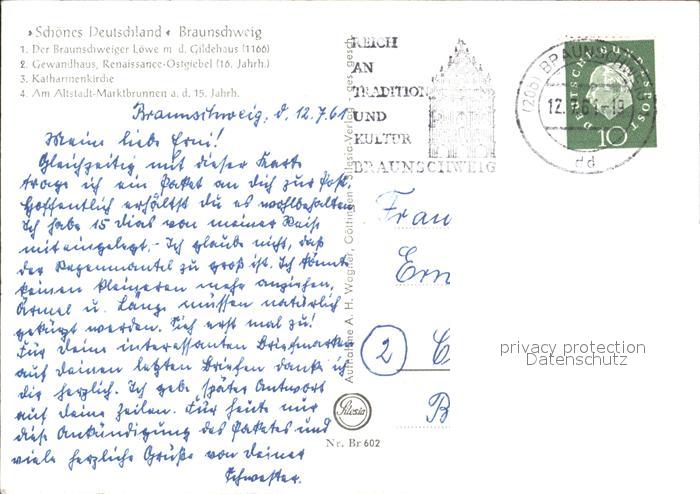 »Schönes Deutschland« Braunschweig
1. Der Braunschweiger Löwe m d. Gildehaus (1166)
2. Gewandhaus, Renaissance-Ostgiebel (16. Jahrh.)
3. Katharinenkirche
4. Am Altstadt-Marktbrunnen a. d. 15. Jahrh.
Braunschweig, d. 12.7.61
Meine liebe Erni!
Gleichzeitig mit dieser Karte
trage ich ein Paket an dich zur Post,
hoffentlich erhältst du es wohlbehalten.
Ich habe 15 Dias von meiner Reise
mit eingelegt.- Ich glaube nicht, daß
der Regenmantel zu groß ist. Ich könnte
keinen kleineren mehr anziehen,
Ärmel u. Länge müssen natürlich
gekürzt werden. Sieh erst mal zu!
Für deine interessanten Briefmarken
auf deinen letzten Briefen danke ich
dir herzlich. Ich gebe später Antwort
auf deine Zeilen. Für heute nur
diese Ankündigung des Paketes und
viele herzliche Grüße von deiner
Schwester.
REICH
AN
TRADITION
UND
KULTUR
BRAUNSCHWEIG
(20b) BRAUNSCHWEIG
12.7.61-19
dd
DEUTSCHE BUNDESPOST
10
Aufnahme A. H. Wagner, Göttingen Silesia-Verlag ges. gesch.
Frau
Ern
2 C
B
Silesia
Nr. Br 602
privacy protection
Datenschutz